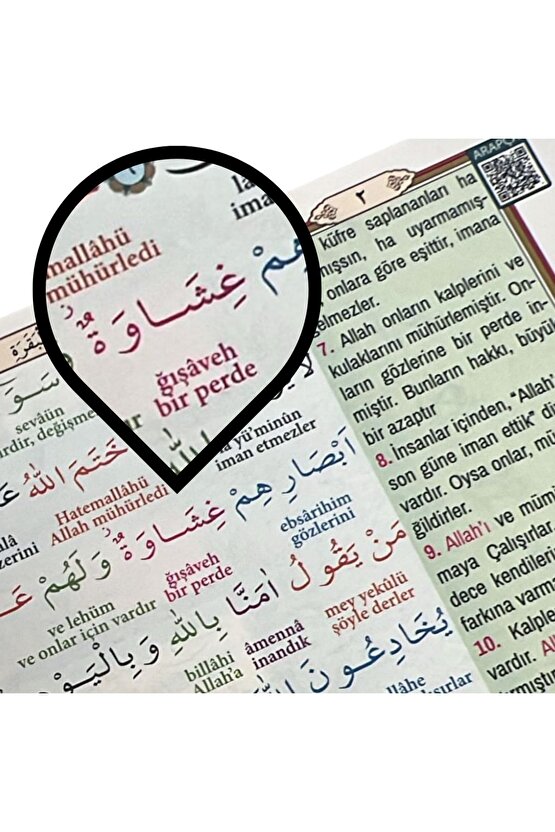 mallâhü
mühürledi
هِمْ غِشَاوَةٌ
ğışâveh
bir perde
ARAPÇ
٢
küfre saplananları ha
ha uyarmamış-
onlara göre eşittir, imana
7. Allah onların kalplerini ve
kulaklarını mühürlemiştir. On-
ların gözlerine bir perde in-
miştir. Bunların hakkı, büyü
bir azaptır
8. İnsanlar içinden, "Allah
son güne iman ettik" d
vardır. Oysa onlar, mü
ğildirler.
9. Allah'ı ve müm
maya Çalışırla
dece kendileri
farkına varm
10. Kalple
vardır. Al
sevâün
yü'minûn
iman etmezler
خَتَمَ اللّٰهُ
Hatemallâhü
Allah mühürledi
اَبْصَارِهِمْ غِشَاوَةٌ وَلَهُمْ
ebsârihim
gözlerini
ğışâveh
bir perde
ve lehüm
ve onlar için vardır
مَنْ يَقُولُ اٰمَنَّا بِاللّٰهِ وَبِالْيَوْمِ
mey yekûlü
şöyle derler
âmennâ
inandık
billâhi
Allah'a
يُخَادِعُونَ